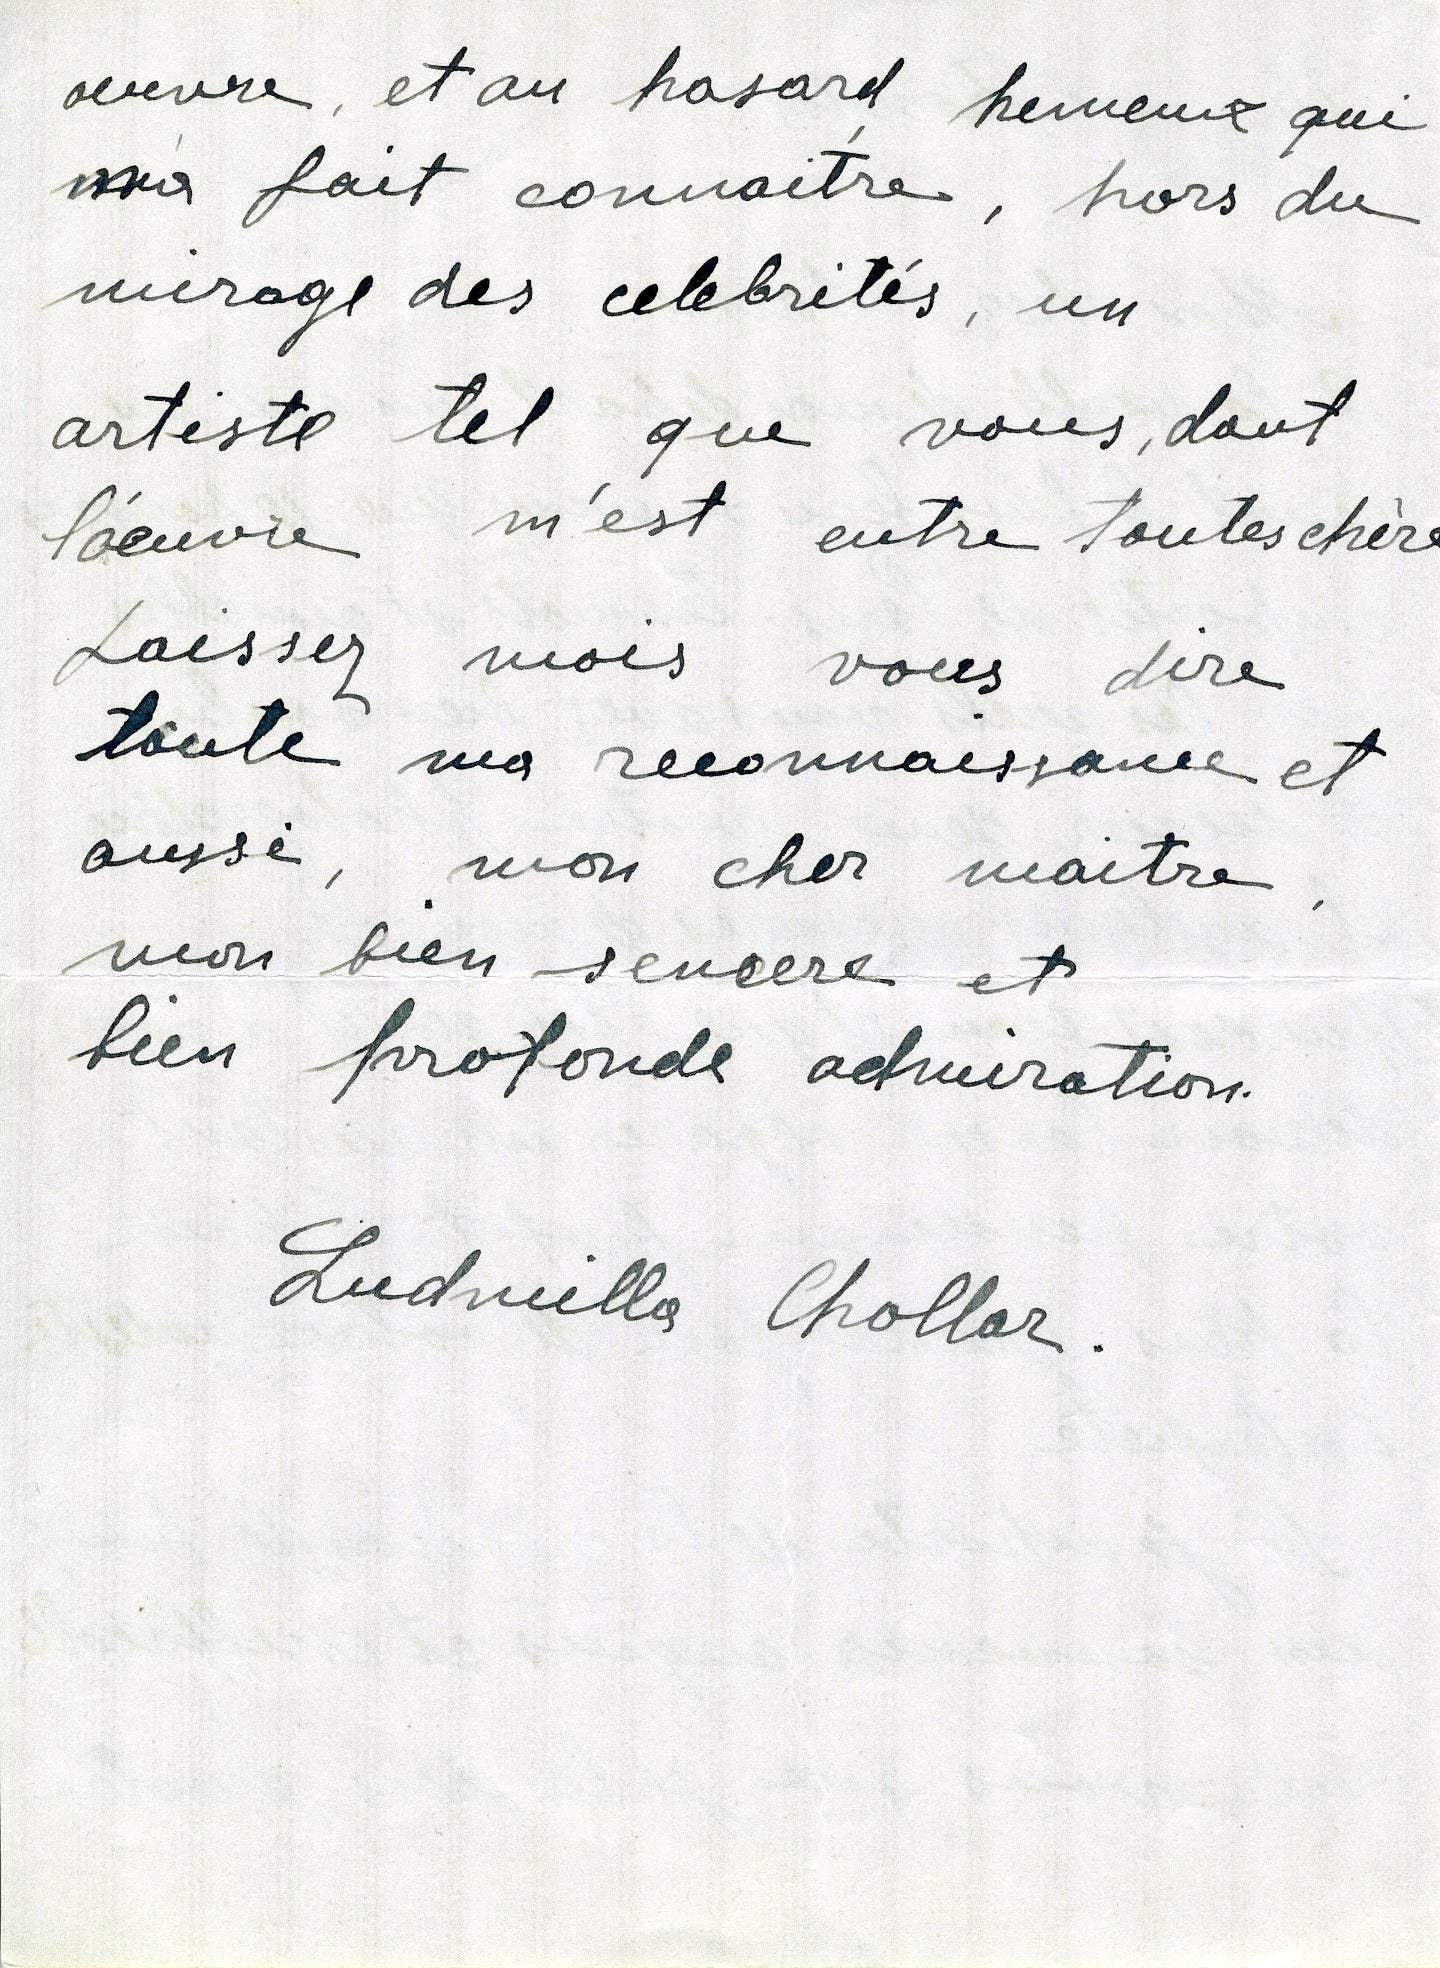 oeuvre, et au hasard, hereuux qui
m'a fait connaitre, hors du
mirage des celebrités, un
artiste tel que vous, dont
l'oeuvre m'est entre toutes chère
Laissez mois vous dire
toute ma reconnaissance et
aussi, mon cher maitre,
mon bien sencere et
bien profonde admiration.
Ludmilla Chollar.